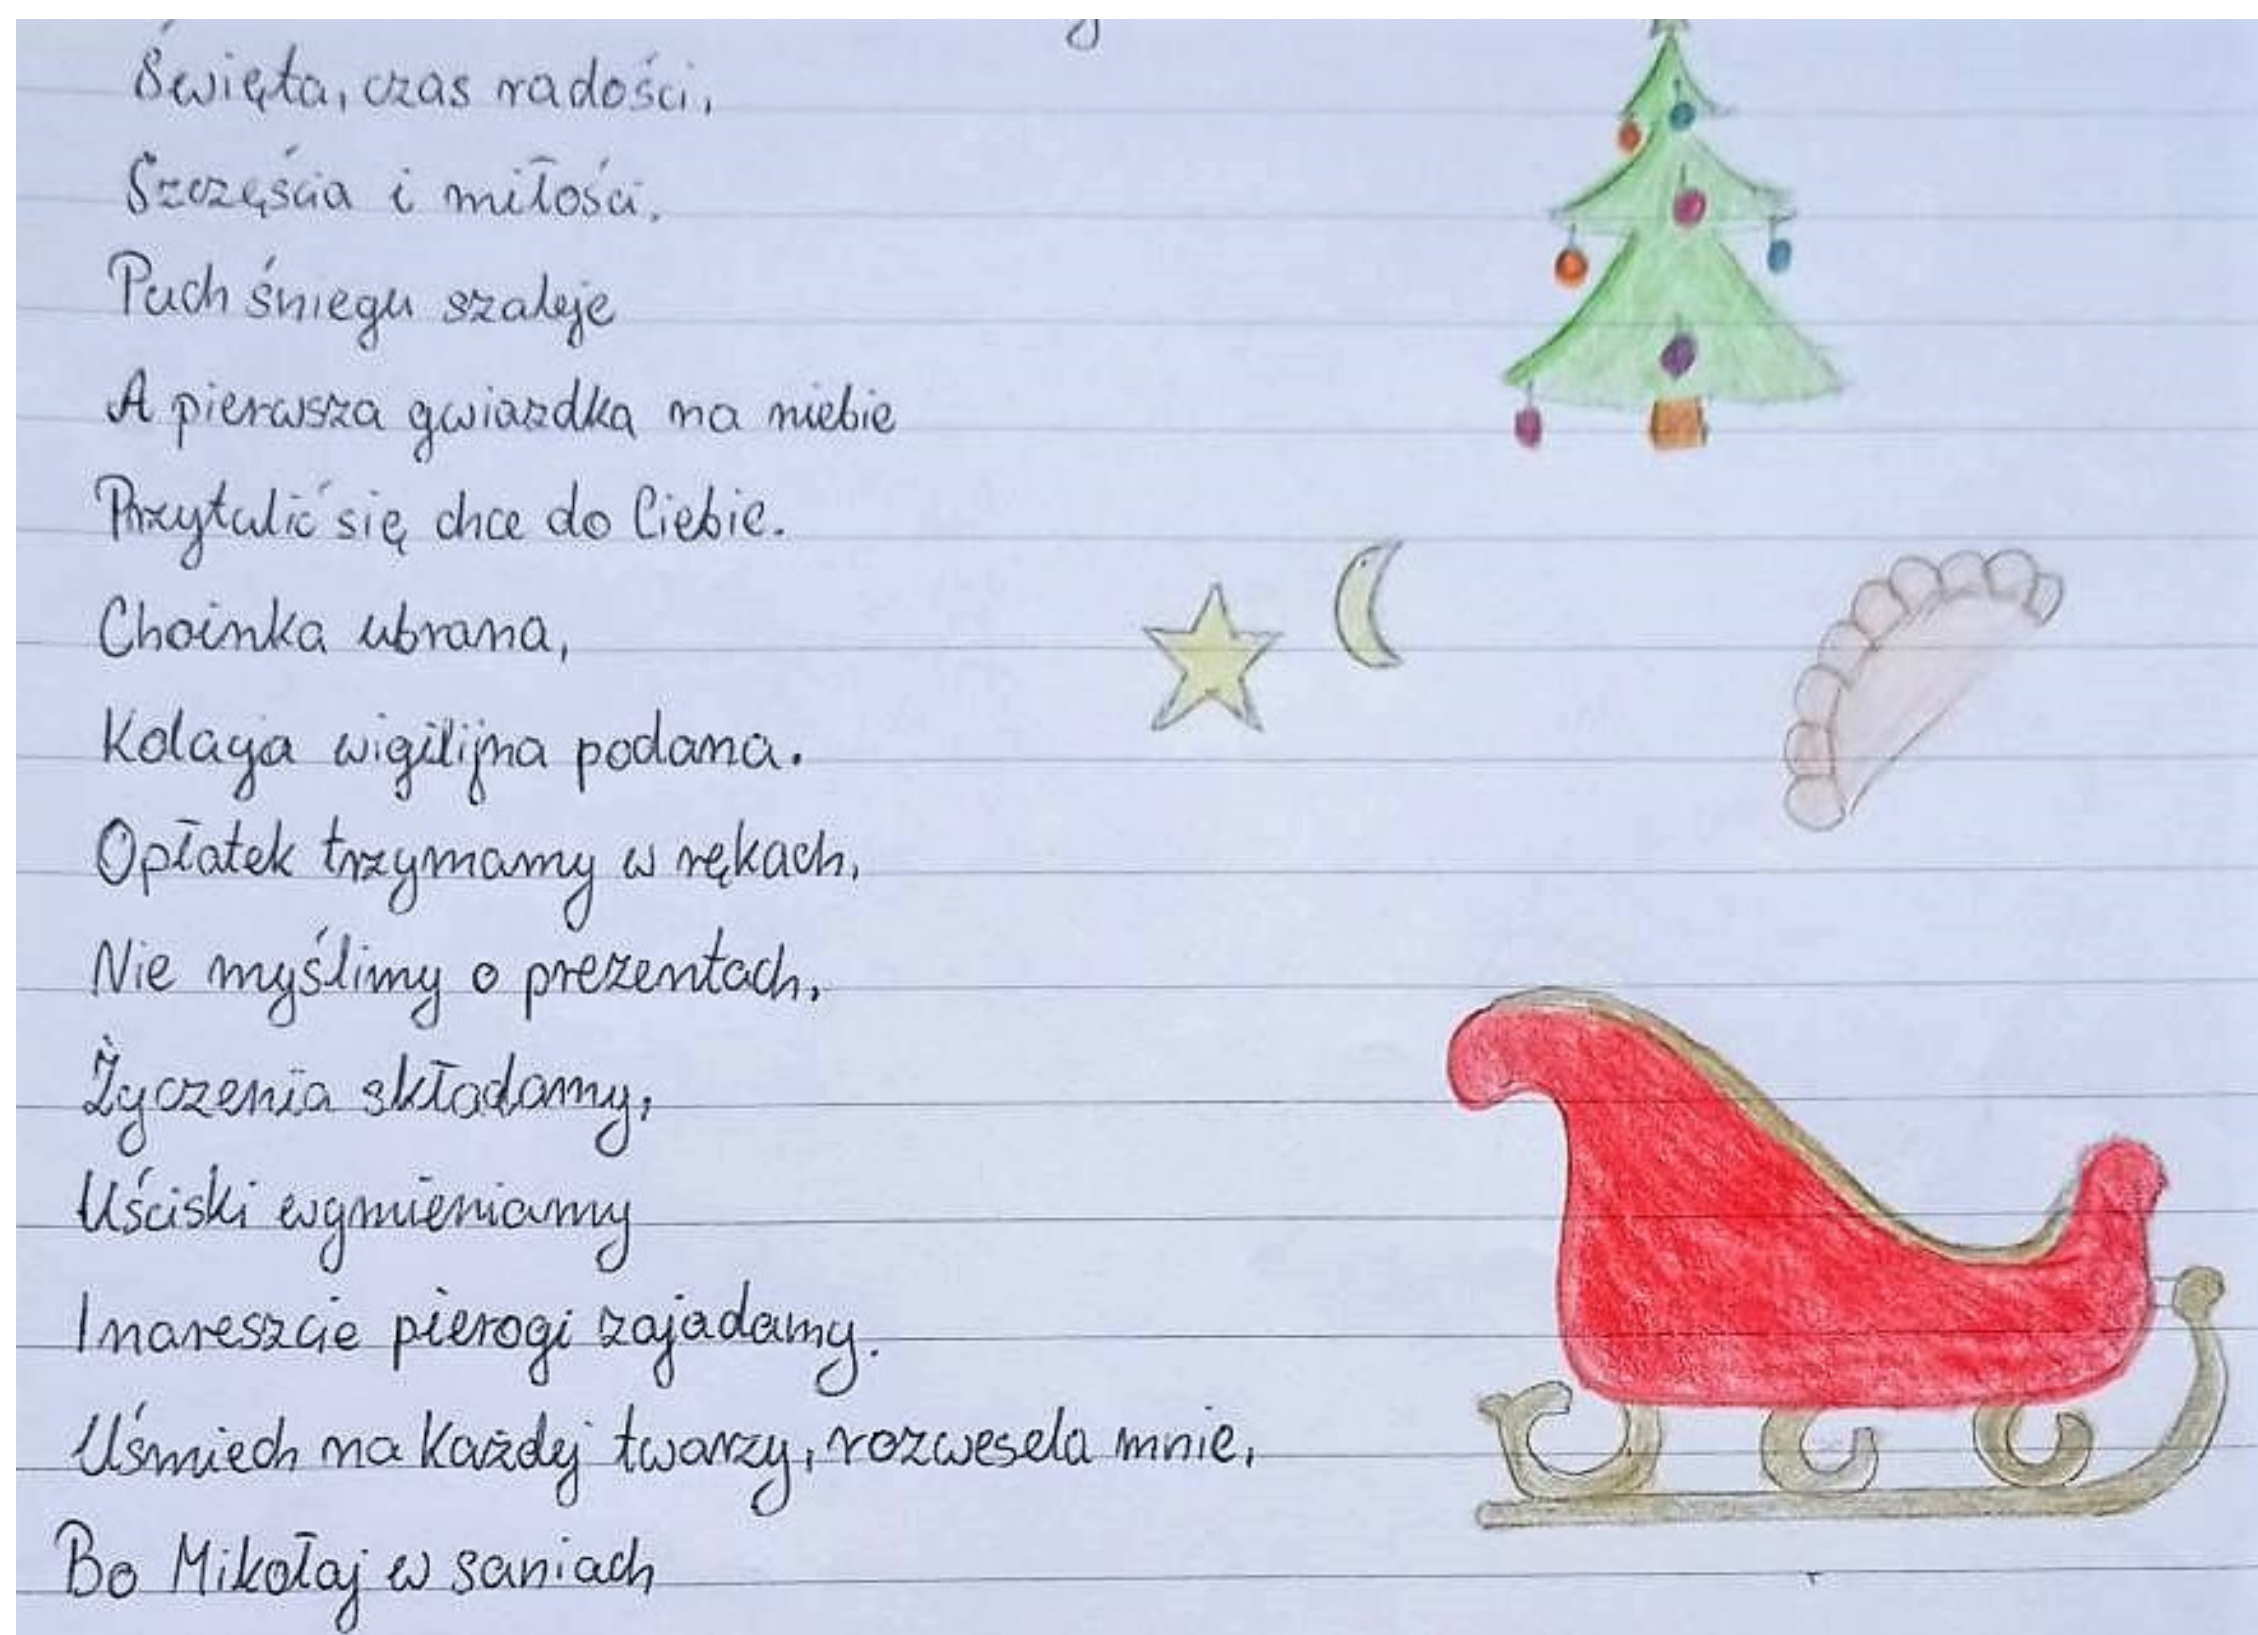 Święta, czas radości,
Szczęścia i miłości.
Puch śniegu szaleje
A pierwsza gwiazdka na niebie
Przytulić się chce do Ciebie.
Choinka ubrana,
Kolacja wigilijna podana.
Opłatek trzymamy w rękach,
Nie myślimy o prezentach,
Życzenia składamy,
Uściski wymieniamy
I nareszcie pierogi zajadamy.
Uśmiech na każdej twarzy, rozwesela mnie,
Bo Mikołaj w saniach